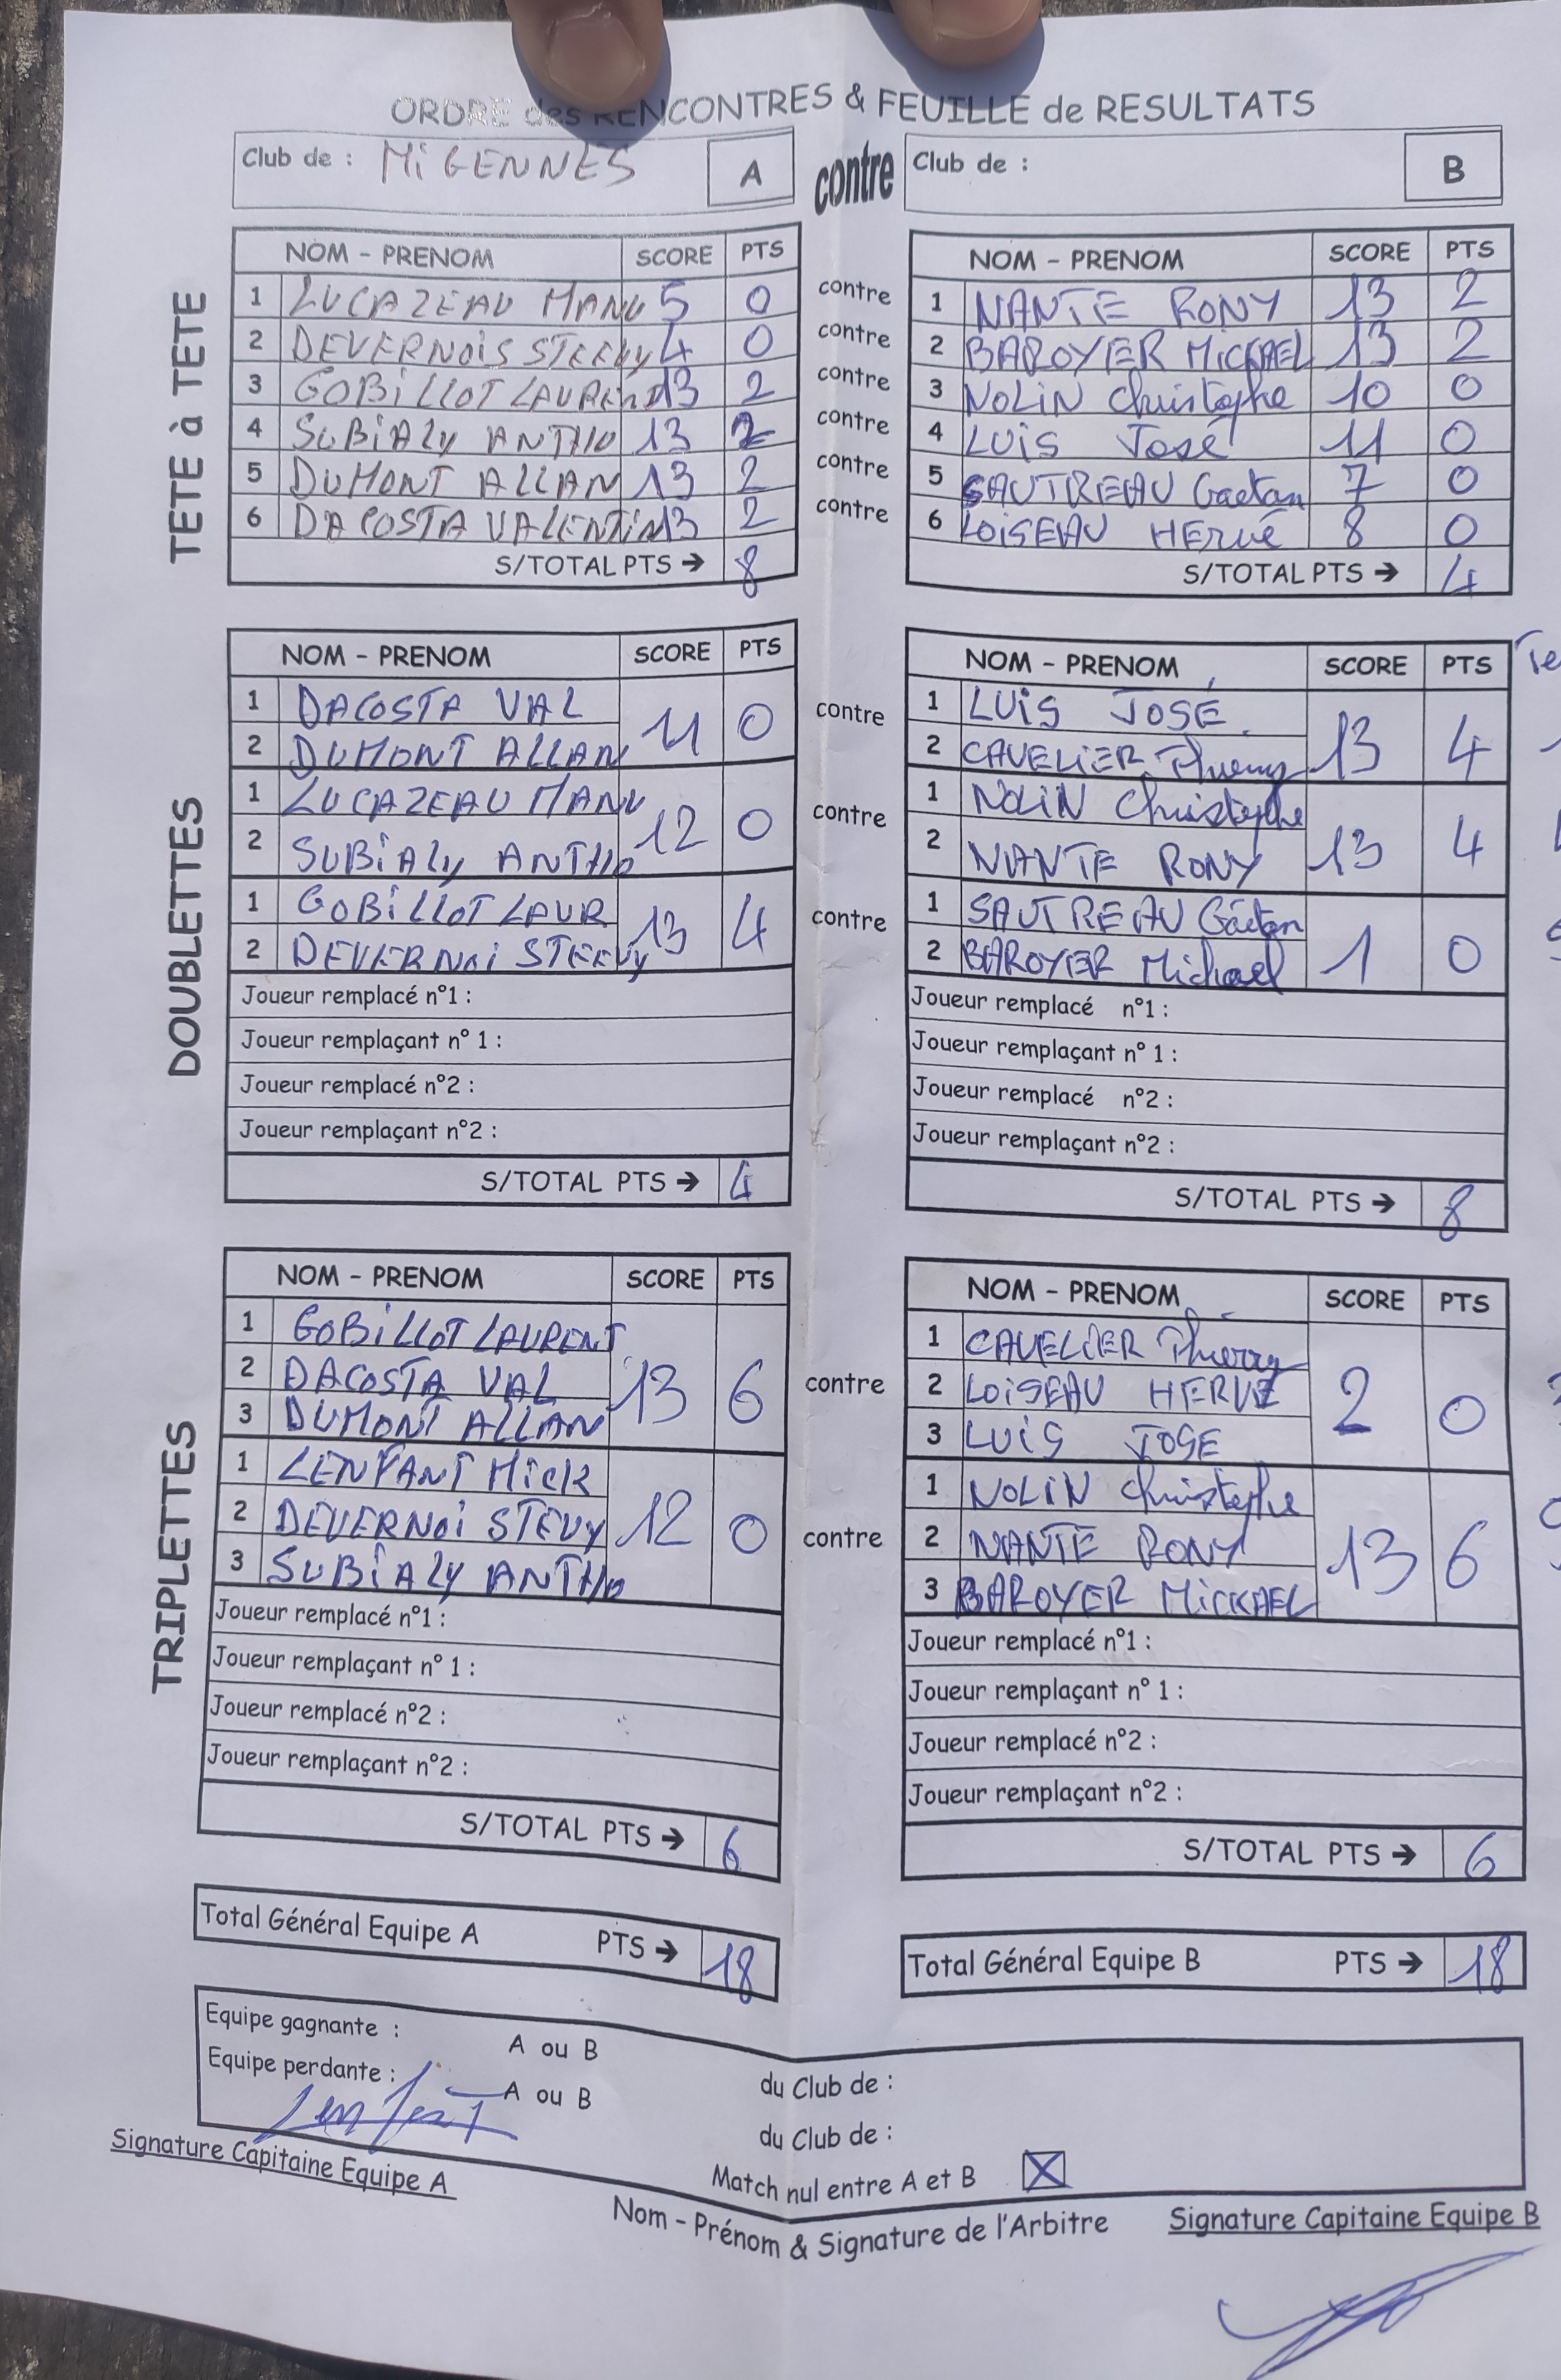 ORDRE des RENCONTRES & FEUILLE de RESULTATS
Club de : MiGENNES A contre Club de : B
TETE à TETE
NOM - PRENOM SCORE PTS NOM - PRENOM SCORE PTS
1 LUCAZEAU MANU 5 0 contre 1 NANTE RONY 13 2
2 DEVERNOiS STEEVY 4 0 contre 2 BAROYER MICKAEL 13 2
3 GOBiLLOT LAURENT 13 2 contre 3 NOLiN Christophe 10 0
4 SUBiALY ANTHO 13 2 contre 4 LUiS José 11 0
5 DUMONT ALLAN 13 2 contre 5 SAUTREAU Gaetan 7 0
6 DACOSTA VALENTiN 13 2 contre 6 LOiSEAU HErvé 8 0
S/TOTAL PTS → 8 S/TOTAL PTS → 4
DOUBLETTES
NOM - PRENOM SCORE PTS NOM - PRENOM SCORE PTS
1 DACOSTA VAL 11 0 contre 1 LUiS JOSÉ 13 4
2 DUMONT ALLAN 2 CAVELiER Thierry
1 LUCAZEAU MANU 12 0 contre 1 NOLiN Christophe 13 4
2 SUBiALY ANTHO 2 NANTE RONY
1 GOBiLLOT LAUR 13 4 contre 1 SAUTREAU Gaëtan 1 0
2 DEVERNOi STEEVY 2 BAROYER Michael
Joueur remplacé n°1 : Joueur remplacé n°1 :
Joueur remplaçant n° 1 : Joueur remplaçant n° 1 :
Joueur remplacé n°2 : Joueur remplacé n°2 :
Joueur remplaçant n°2 : Joueur remplaçant n°2 :
S/TOTAL PTS → 4 S/TOTAL PTS → 8
TRIPLETTES
NOM - PRENOM SCORE PTS NOM - PRENOM SCORE PTS
1 GOBiLLOT LAURENT 13 6 contre 1 CAVELiER Thierry 2 0
2 DACOSTA VAL 2 LOiSEAU HERVE
3 DUMONT ALLAN 3 LUiS JOSE
1 LENFANT MiCK 12 0 contre 1 NOLiN Christophe 13 6
2 DEVERNOi STEVY 2 NANTE RONY
3 SUBiALY ANTHO 3 BAROYER MiCKAEL
Joueur remplacé n°1 : Joueur remplacé n°1 :
Joueur remplaçant n° 1 : Joueur remplaçant n° 1 :
Joueur remplacé n°2 : Joueur remplacé n°2 :
Joueur remplaçant n°2 : Joueur remplaçant n°2 :
S/TOTAL PTS → 6 S/TOTAL PTS → 6
Total Général Equipe A PTS → 18 Total Général Equipe B PTS → 18
Equipe gagnante : A ou B du Club de :
Equipe perdante : A ou B du Club de :
Match nul entre A et B X
Signature Capitaine Equipe A Nom - Prénom & Signature de l'Arbitre Signature Capitaine Equipe B